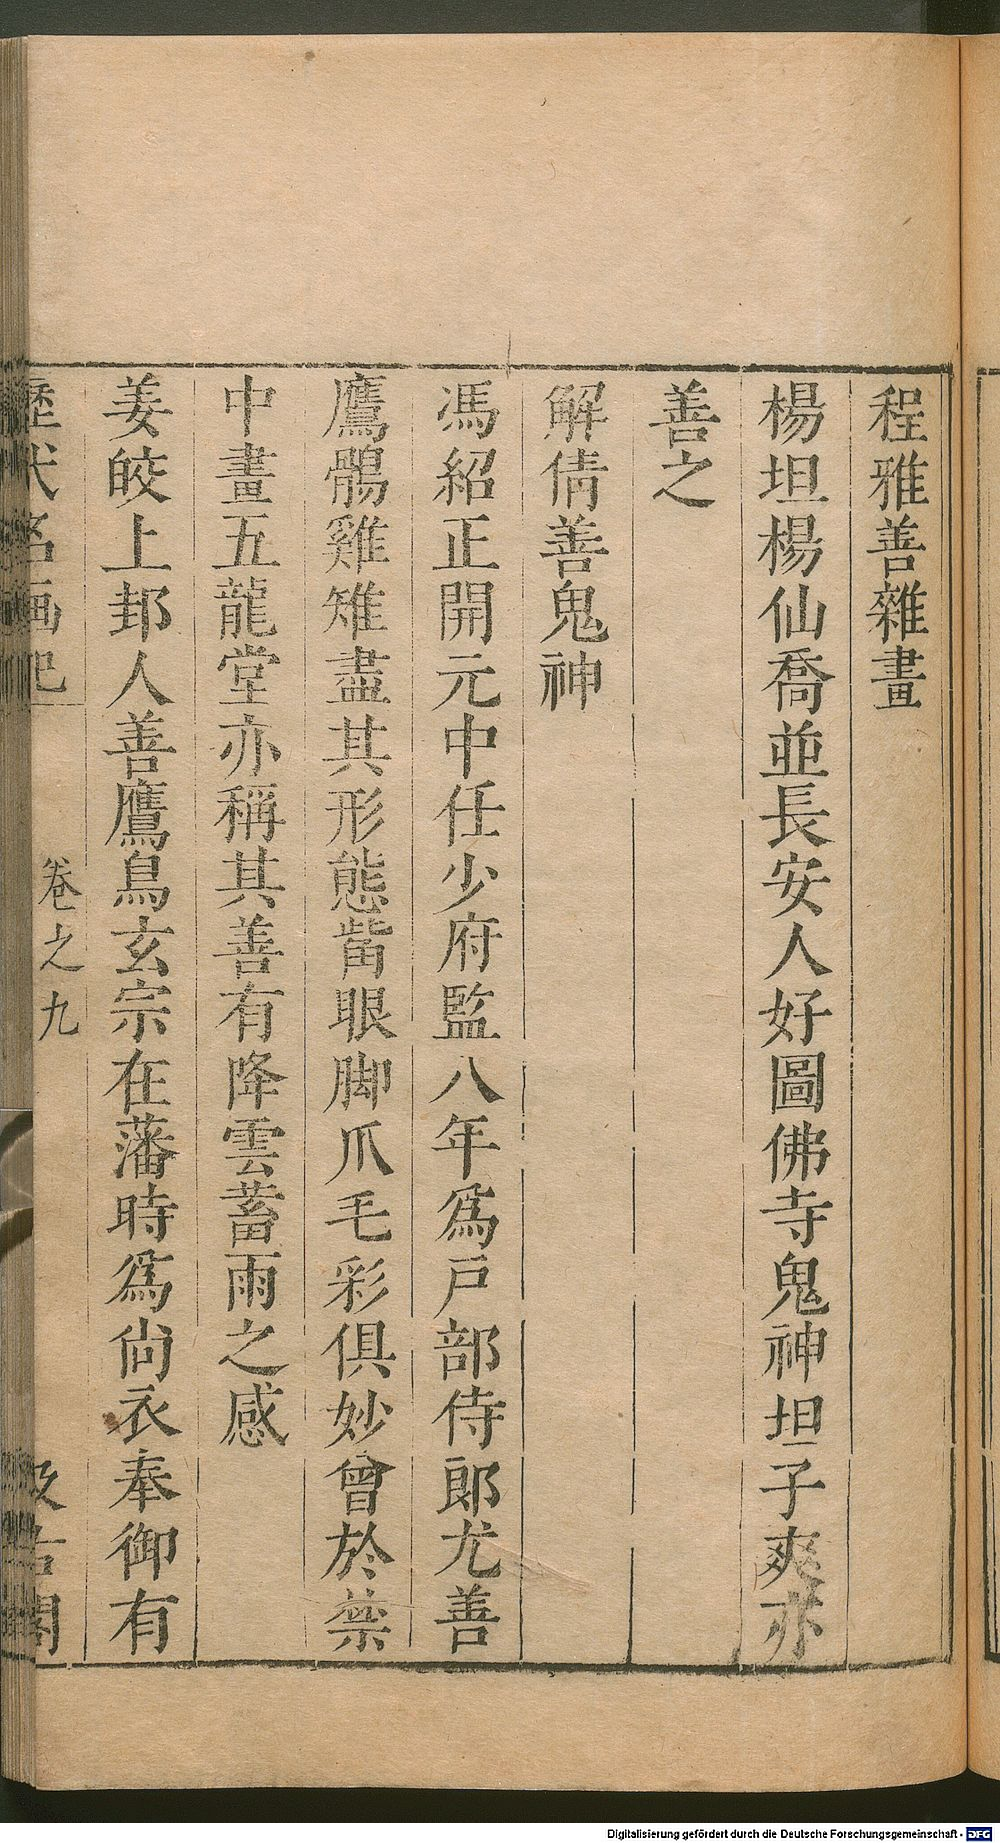 程雅善雜畫
楊坦楊仙喬並長安人好圖佛寺鬼神坦子爽亦
善之
解倩善鬼神
馮紹正開元中任少府監八年爲戸部侍郎尤善
鷹鶻雞雉盡其形態觜眼脚爪毛彩俱妙曾於禁
中畫五龍堂亦稱其善有降雲蓄雨之感
姜皎上邽人善鷹鳥玄宗在藩時爲尙衣奉御有
歷代名画記 卷之九 汲古閣
Digitalisierung gefördert durch die Deutsche Forschungsgemeinschaft - DFG